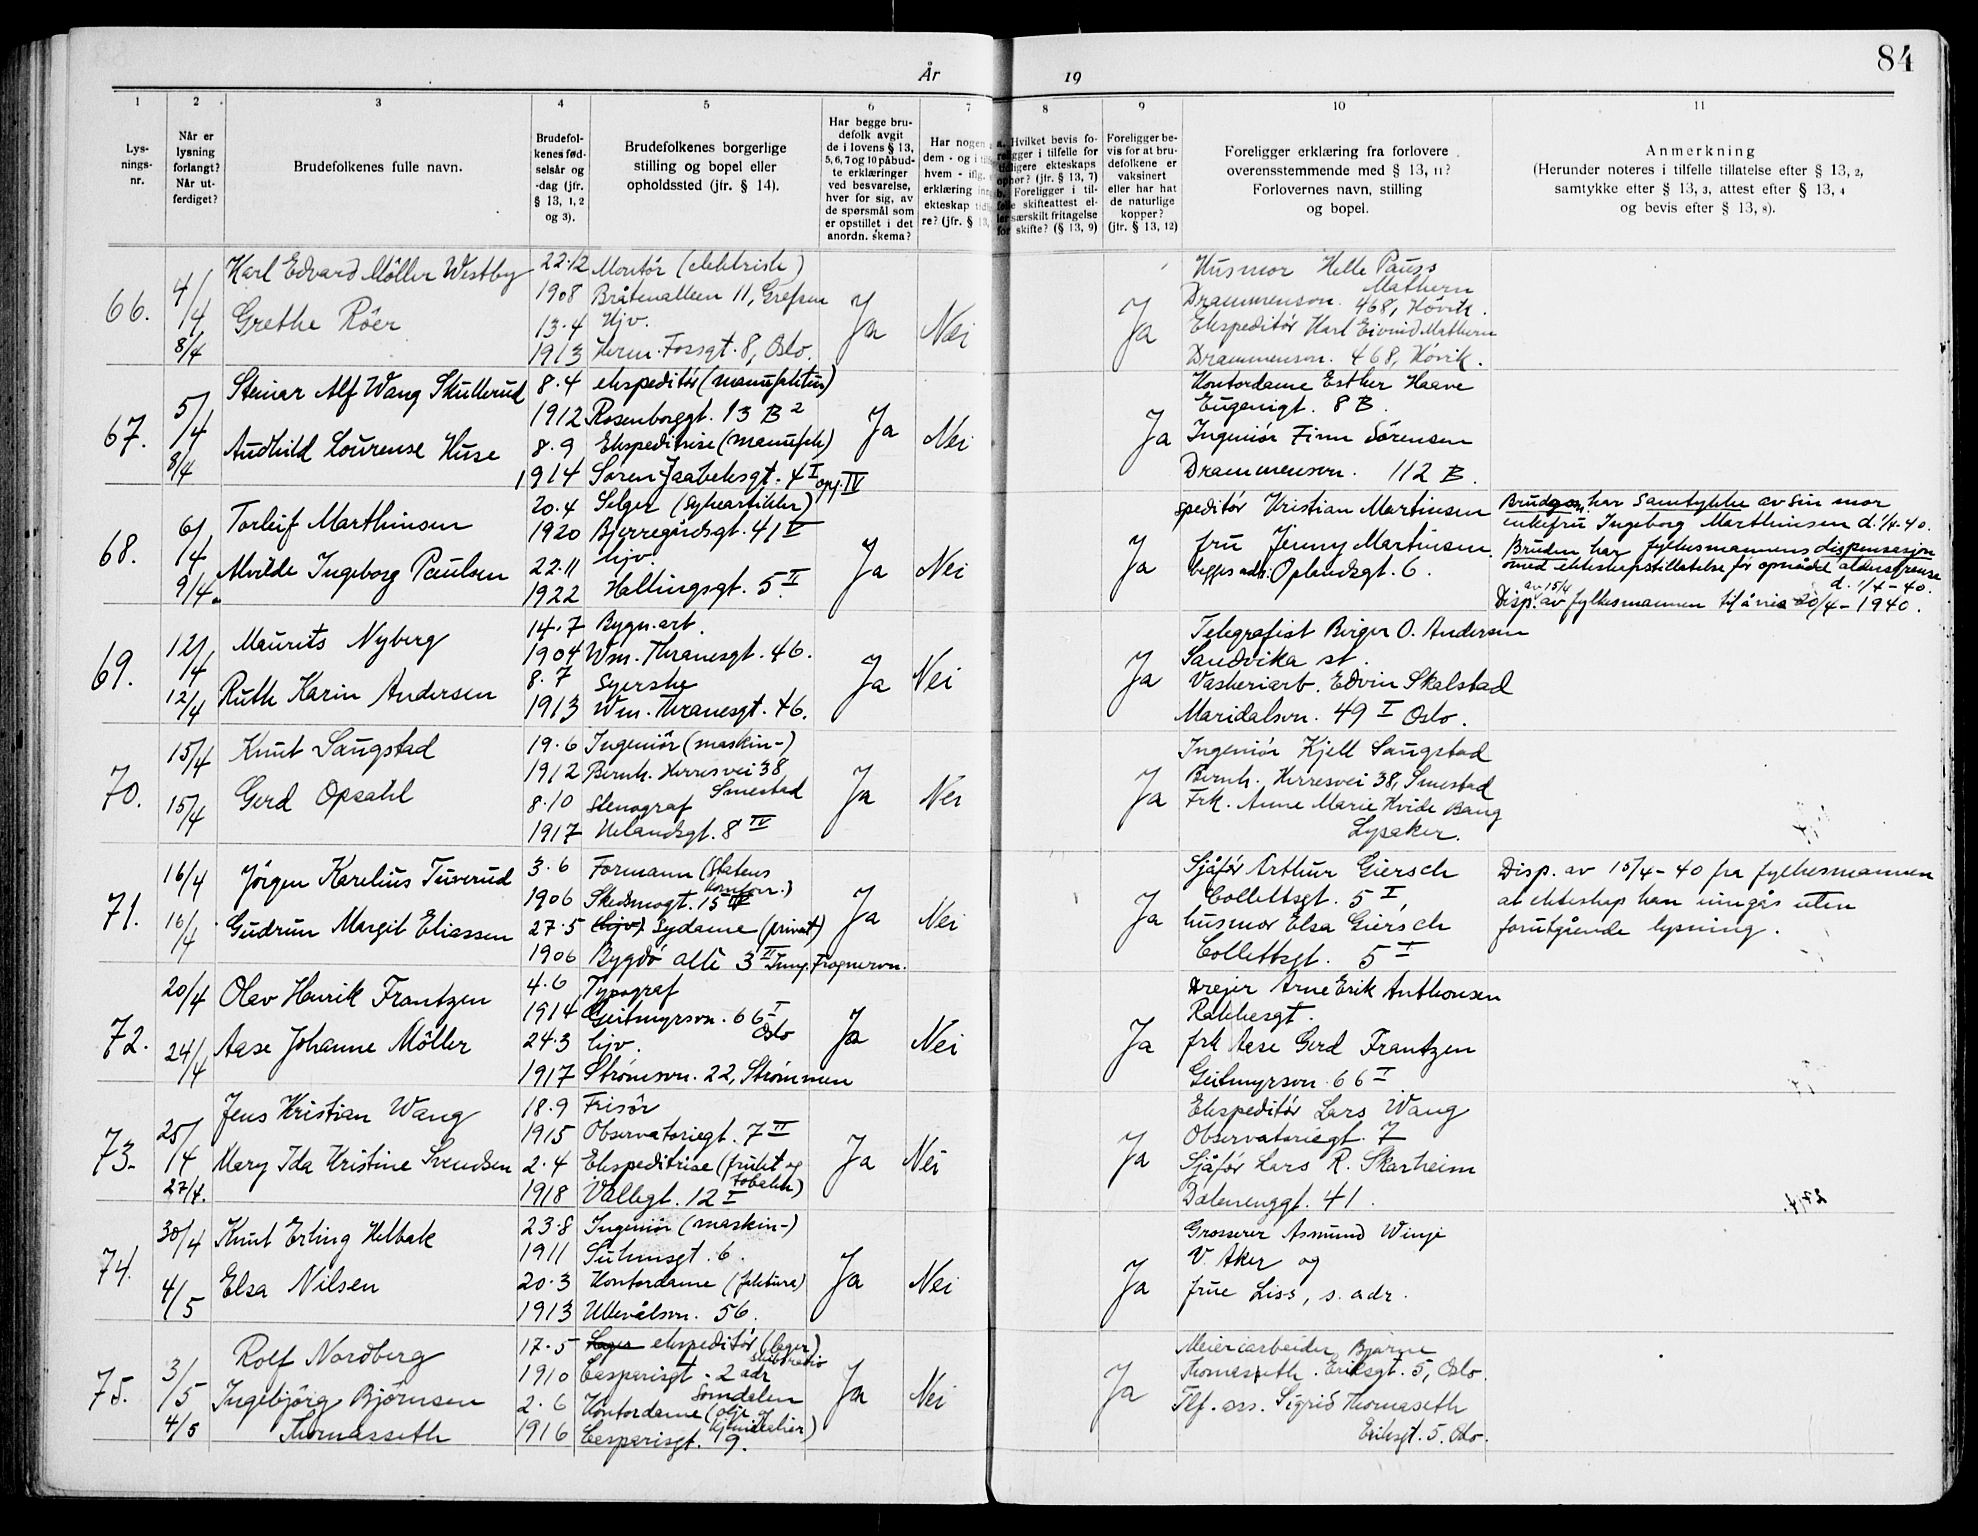 84
År 19
1 2 3 4 5 6 7 8 9 10 11
Lys-
nings-
nr.
Når er
lysning
forlangt?
Når ut-
ferdiget?
Brudefolkenes fulle navn.
Brudefol-
kenes fød-
selsår og
-dag (jfr.
§ 13, 1, 2
og 3).
Brudefolkenes borgerlige
stilling og bopel eller
opholdssted (jfr. § 14).
Har begge bru-
defolk avgit
de i lovens § 13,
5, 6, 7 og 10 påbud-
te erklæringer
ved besvarelse,
hver for sig, av
de spørsmål som
er opstillet i det
anordn. skema?
Har nogen
dem - og i
hvem - iflg.
erklæring
ekteskap
re? (jfr. § 13,
a. Hvilket bevis fo-
religger i tilfelle for
tidligere ekteskaps
ophør? (jfr. § 13, 7)
b. Foreligger i til-
felle skifteattest el-
ler særskilt fritagelse
for skifte? (§ 13, 9)
Foreligger be-
vis for at bru-
defolkene er
vaksinert
eller har hat
de naturlige
kopper?
(jfr. § 13, 12)
Foreligger erklæring fra forlovere
overensstemmende med § 13, 11?
Forlovernes navn, stilling
og bopel.
Anmerkning
(Herunder noteres i tilfelle tillatelse efter § 13, 2,
samtykke efter § 13, 3, attest efter § 13, 4
og bevis efter § 13, 8).
66.
4/4
8/4
Karl Edvard Möller Westby
Grethe Röer
22.12
1908
13.4
1913
Montör (elektrisk)
Bråtenalleen 11, Grefsen
Hjv.
Herm. Fossgt. 8, Oslo.
Ja
Nei
Ja
Husmor Helle Pauss
Mathern
Drammensvn. 468, Hövik.
Ekspeditör Karl Eivind Mathern
Drammensvn. 468, Hövik.
67.
5/4
8/4
Steinar Alf Wang Skullerud
Audhild Lourense Huse
8.4
1912
8.9
1914
ekspeditör (manufaktur)
Rosenborggt. 13 B 2
Ekspeditrise (manufak)
Sören Jaabeksgt. 4 I opg. IV
Ja
Nei
Ja
Kontordame Esther Haave
Eugenigt. 8 B.
Ingeniör Finn Sörensen
Drammensvn. 112 B.
68.
6/4
9/4.
Torleif Marthinsen
Alvilde Ingeborg Paulsen
20.4
1920
22.11
1922
Selger (syheartikler)
Bjerregårdsgt. 41 V
hjv.
Hallingsgt. 5 II
Ja
Nei
Ja
speditör Kristian Martinsen
fru Jenny Martinsen
begges adr. Oplandsgt. 6.
Brudgom har samtykke av sin mor
enkefru Ingeborg Marthinsen d. 1/4-40.
Bruden har fylkesmannens dispensasjon
med ekteskapstillatelse för opnådd aldersgrense
d. 1/4-40.
av 15/4
Disp. av fylkesmannen til å vie 20/4-1940.
69.
12/4
12/4
Maurits Nyberg
Ruth Karin Andersen
14.7
1904
8.7
1913
Bygn.arb.
Wm. Thranesgt. 46.
Syerske
Wm. Thranesgt. 46.
Ja
Nei
Ja
Telegrafist Birger O. Andersen
Sandvika st.
Vaskeriarb. Edvin Skalstad
Maridalsvn. 49 I Oslo.
70.
15/4
15/4
Knut Saugstad
Gerd Opsahl
19.6
1912
8.10
1917
Ingeniör (maskin-)
Bernh. Herresvei 38
Smestad
Stenograf
Uelandsgt. 8 IV
Ja
Nei
Ja
Ingeniör Kjell Saugstad
Bernh. Herresvei 38, Smestad
Frk. Anne Marie Hvide Bang
Lysaker.
71.
16/4
16/4
Jörgen Karelius Tuverud
Gudrun Margit Eliassen
3.6
1906
27.5
1906
Formann (Statens
kornforr.)
Skedsmogt. 15
(hjv) Sydame (privat)
Bygdö allé 3 II Inng. Frognervn.
Ja
Nei
Ja
Sjåför Arthur Giersch
Collettsgt. 5 I,
husmor Elsa Giersch
Collettsgt. 5 I
Disp. av 15/4-40 fra fylkesmannen
at ekteskap kan inngås uten
forutgående lysning.
72.
20/4
24/4
Olav Henrik Frantzen
Aase Johanne Möller
4.6
1914
24.3
1917
Typograf
Geitmyrsvn. 66 I
Oslo
hjv.
Strömsvn. 22, Strömmen
Ja
Nei
Ja
Dreier Arne Erik Anthonsen
Rakkesgt.
frk Aase Gerd Frantzen
Geitmyrsvn. 66 I
73.
25/4
27/4.
Jens Kristian Wang
Mary Ida Kristine Svendsen
18.9
1915
2.4
1918
Frisör
Observatoriegt. 7 II
Ekspeditrise (frukt og
tobakk)
Vallegt. 12 I
Ja
Nei
Ja
Ekspeditör Lars Wang
Observatoriegt. 7
Sjåför Lars R. Skarheim
Dælenenggt. 41.
27/4.
74.
30/4
4/5
Knut Erling Helbak
Elsa Nilsen
23.8
1911
20.3
1913
Ingeniör (maskin-)
Suhmsgt. 6.
Kontordame (faktura)
Ullevålsvn. 56.
Ja
Nei
Ja
Grosserer Asmund Winje
V. Aker og
frue Liss, s. adr.
75.
3/5
4/5
Rolf Nordberg
Ingebjörg Björnsen
Thomasseth
17.5
1910
2.6
1916
Lager ekspeditör (lager)
Casparisgt. 2 adr
Somdalen
Kontordame (olje og
kjemikalier)
Casparisgt. 9.
Ja
Nei
Ja
Meieriarbeider Bjarne
Thomasseth. Eriksgt. 5, Oslo.
Tlf. ass. Sigrid Thomaseth
Eriksgt. 5. Oslo.